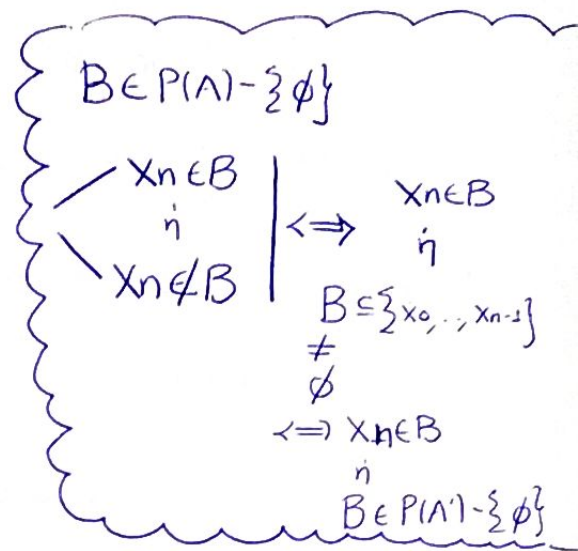 B ∈ P(Λ) - {ϕ}
Xn ∈ B
ή
Xn ∉ B
<=> Xn ∈ B
ή
B ⊆ {x0, .., xn-1}
≠
ϕ
<=> Xn ∈ B
ή
B ∈ P(Λ') - {ϕ}